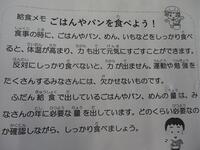 給食メモ ごはんやパンを食べよう!
食事の時に、ごはんやパン、めん、いもなどをしっかり食べ
ると、体温が高まり、力も出て元気にすごすことができます。
反対にしっかり食べないと、力が出ません。運動や勉強を
たくさんするみなさんには、欠かせないものです。
ふだん給食で出しているごはんやめんの量は、み
なさんの年に必要な量を出しています。どのくらい必要なの
か確認しながら、しっかり食べましょう。